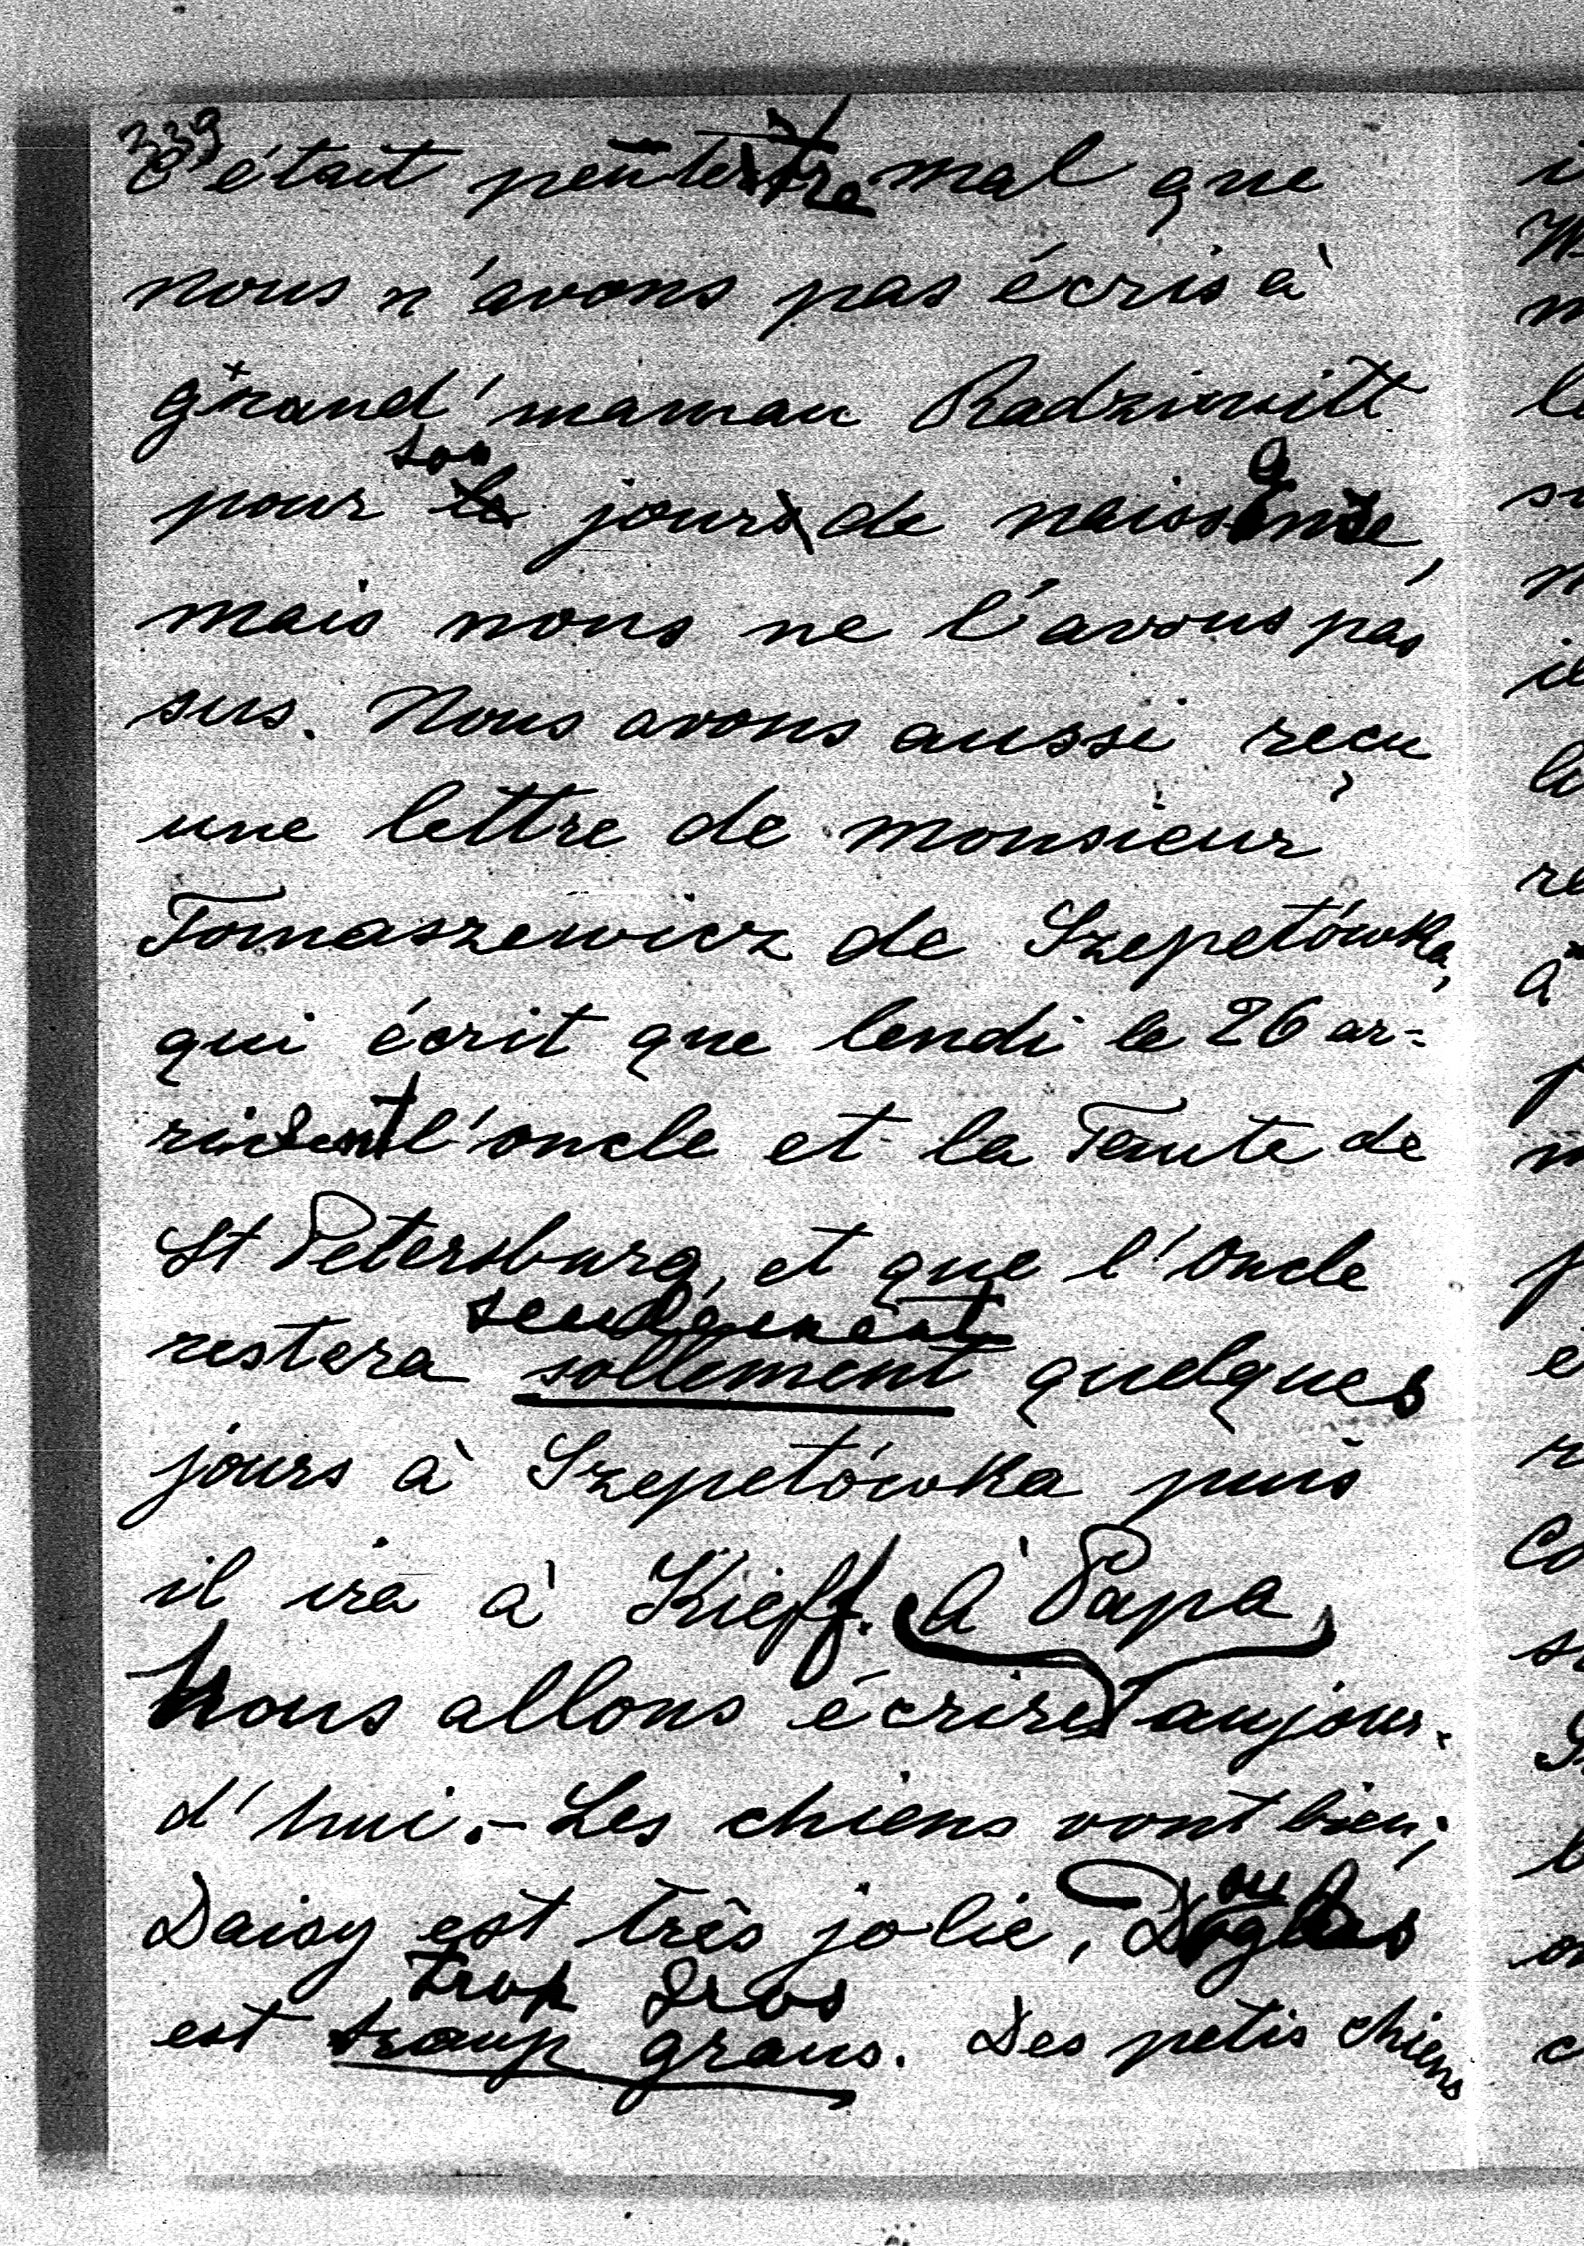 339
C'était peut être mal que
nous n'avons pas écris à
grand'maman Radziwitt
son
pour le jours de naissance,
mais nous ne l'avons pas
sus. Nous avons aussi reçu
une lettre de monsieur
Tomaszewicz de Szepetówka,
qui écrit que lendi le 26 ar-
rivent l'oncle et la Tante de
St Petersburg, et que l'oncle
seulement
restera sollement quelques
jours à Szepetówka puis
il ira à Kieff. à Papa
Nous allons écrire aujour-
d'hui. - Les chiens vont bien;
Daisy est très jolie, Douglas
trop gros
est troup graus. Des petis chiens